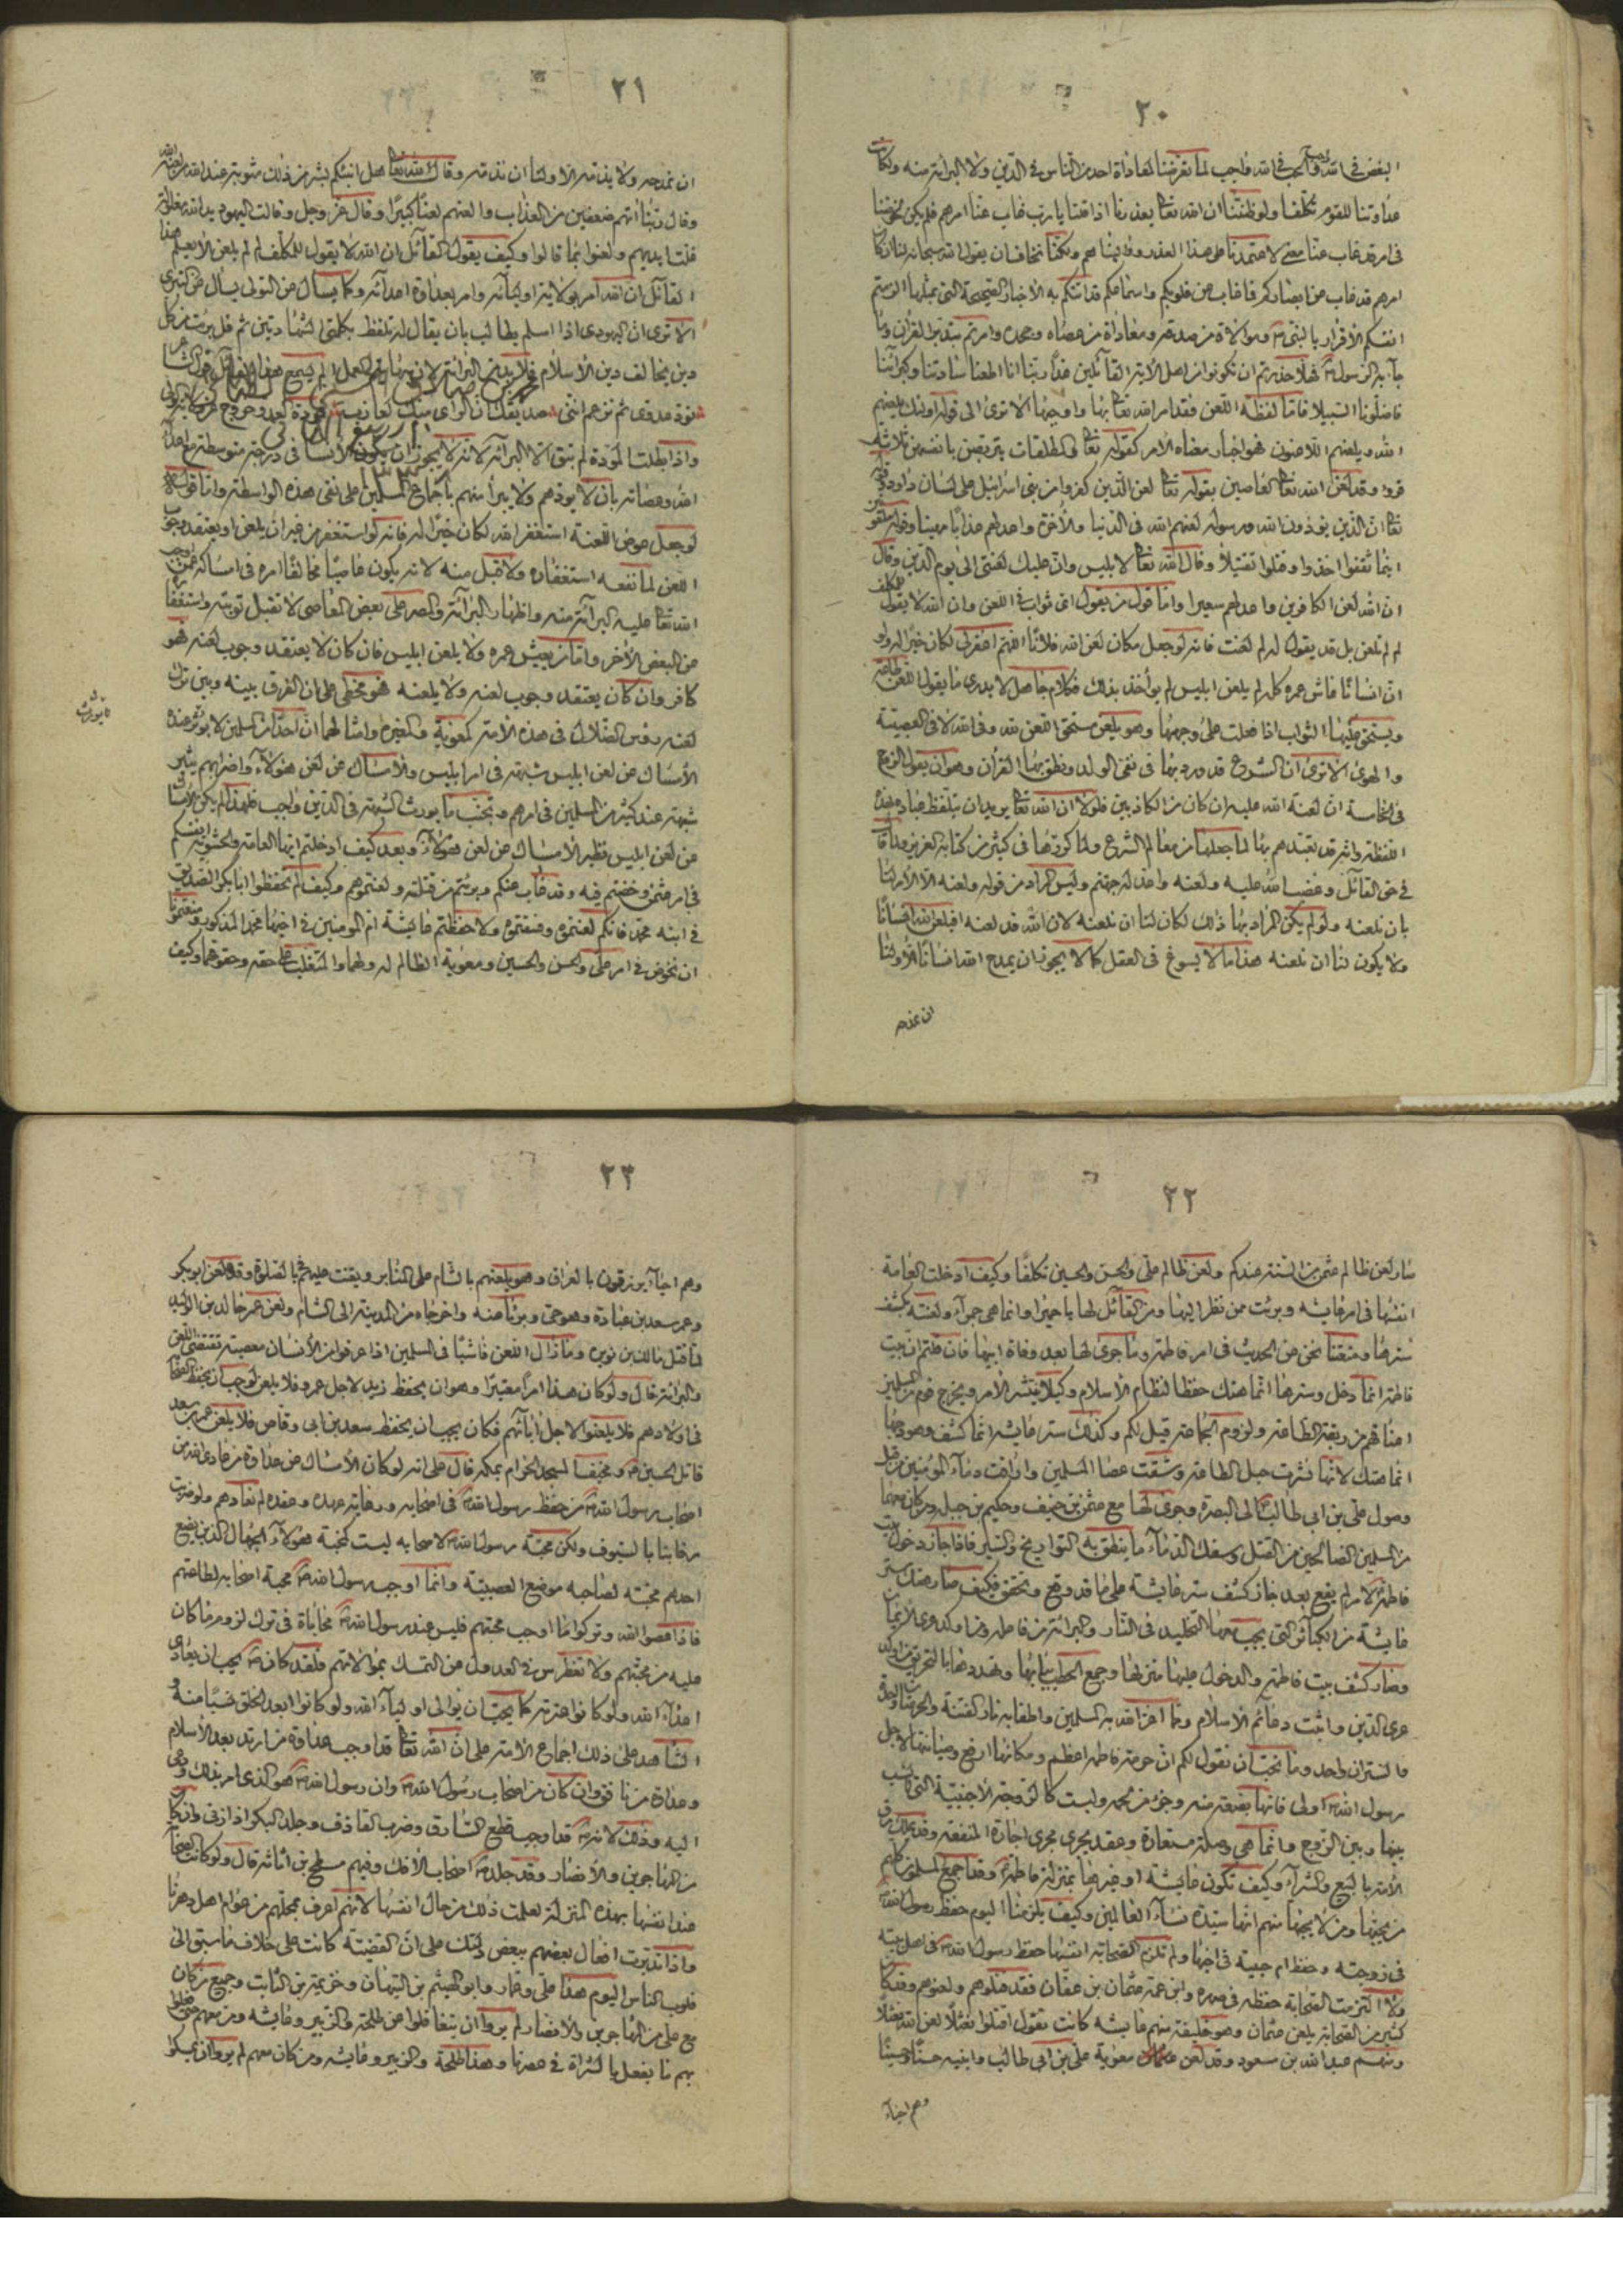 ٢٠
البغض فى الله واجب والحب فى الله واجب لما تعرضنا لمعاداة احد من الناس فى الدين ولا البرائة منه ولكانت
عداوتنا للقوم تكلفا ولو ظننا ان الله تعا يعذرنا اذا قلنا يا رب غاب عنا امرهم فلم يكن لخوضنا
فى امر قد غاب عنا معنى لاعتمدنا على هذا العذر وواليناهم ولكنا نخاف ان يقول الله سبحانه لنا ان كان
امرهم قد غاب عن ابصاركم فلم يغب عن قلوبكم واسماعكم قد اتتكم به الاخبار الصحيحة التى بمثلها الزمتم
انفسكم الاقرار بالنبى ص وموالاة من صدقه ومعاداة من عصاه وجحده وامرتم بتدبر القرآن وما
جآء به الرسول ص فهلا حذرتم ان تكونوا من اهل الآية القآئلين غدا ربنا انا اطعنا سادتنا وكبرآءنا
فاضلونا السبيلا فاما لفظة اللعن فقد امر الله تعا بها واوجبها الا ترى الى قوله اولئك يلعنهم
الله ويلعنهم اللاعنون فهو اخبار معناه الامر كقوله تعا والمطلقات يتربصن بانفسهن ثلاثة
قروء وقد لعن الله تعا العاصين بقوله تعا لعن الذين كفروا من بنى اسرائيل على لسان داود وقوله
تعا ان الذين يؤذون الله ورسوله لعنهم الله فى الدنيا والآخرة واعد لهم عذابا مهينا وقوله ملعونين
اينما ثقفوا اخذوا وقتلوا تقتيلا وقال الله تعا لابليس وان عليك لعنتى الى يوم الدين وقال
ان الله لعن الكافرين واعد لهم سعيرا واما قول من يقول اى ثواب فى اللعن وان الله لا يقول للمكلف
لم لم تلعن بل قد يقول له لم لعنت فانه لو جعل مكان لعن الله فلانا اللهم اغفر لى لكان خيرا له ولو
ان انسانا عاش عمره كله لم يلعن ابليس لم يؤاخذ بذلك فكلام جاهل لا يدرى ما يقول اللعن طاعة
ويستحق عليها الثواب اذا فعلت على وجهها وهو يلعن مستحق اللعن لله وفى الله لا فى العصبية
والهوى الا ترى ان الشرع قد ورد بها فى نفى الولد ونطق بها القرآن وهو ان يقول الزوج
فى الخامسة ان لعنة الله عليه ان كان من الكاذبين فلولا ان الله تعا يريد ان يتلفظ عباده بهذه
اللفظة وانه قد تعبدهم بها لما جعلها من معالم الشرع ولما كررها فى كثير من كتابه العزيز ولما قال
فى حق القاتل وغضب الله عليه ولعنه واعد له جهنم وليس المراد من قوله ولعنه الا الامر لنا
بان نلعنه ولو لم يكن المراد بها ذلك لكان لنا ان نلعنه لان الله قد لعنه افيلعن الله انسانا
ولا يكون لنا ان نلعنه هذا ما لا يسوغ فى العقل كما لا يجوز ان يمدح الله انسانا الا ولنا
ان نمدحه
٢١
ان نمدحه ولا يذمه الا ولنا ان نذمه وقال الله تعا هل انبئكم بشر من ذلك مثوبة عند الله من لعنه الله
وقال ربنا آتهم ضعفين من العذاب والعنهم لعنا كبيرا وقال عز وجل وقالت اليهود يد الله مغلولة
غلت ايديهم ولعنوا بما قالوا وكيف يقول القآئل ان الله لا يقول للمكلف لم لم تلعن الا يعلم هذا
القآئل ان الله امر بولاية اوليآئه وامر بعداوة اعدآئه وكما يسأل عن التولى يسأل عن التبرى
الا ترى ان اليهودى اذا اسلم يطالب بان يقال له تلفظ بكلمتى الشهادتين ثم قل برئت من كل
دين يخالف دين الاسلام فلا بد من البرائة لان بها يتم العمل الم يسمع هذا القآئل قول الشاعر
تود عدوى ثم تزعم اننى صديقك ان الراى عنك لعازب فمودة العدو خروج عن ولاية الولى
واذا بطلت المودة لم يبق الا البرائة لانه لا يجوز ان يكون الانسان فى درجة متوسطة مع اعدآء
الله وعصاته بان لا يودهم ولا يبرأ منهم باجماع المسلمين على نفى هذه الواسطة واما قوله
لو جعل عوض اللعنة استغفر الله لكان خيرا له فانه لو استغفر من غير ان يلعن او يعتقد وجوب
اللعن لما نفعه استغفاره ولا قبل منه لانه يكون عاصيا مخالفا امره فى امساكه عمن اوجب
الله تعا عليه البرائة منه واظهار البرائة والمصر على بعض المعاصى لا تقبل توبته واستغفاره
عن البعض الآخر واما من يعيش عمره ولا يلعن ابليس فان كان لا يعتقد وجوب لعنه فهو
كافر وان كان يعتقد وجوب لعنه ولا يلعنه فهو مخطى على ان الفرق بينه وبين ترك
لعنه رؤس الضلال فى هذه الامة كمعوية والمغيره وامثالهما ان احدا من المسلمين لا يورث عنده
الامساك عن لعن ابليس شبهة فى امر ابليس والامساك عن لعن هؤلآء واضرابهم يثير
شبهة عند كثير من المسلمين فى امرهم وتجنب ما يورث الشبهة فى الدين واجب فلهذا لم يكن الامساك
عن لعن ابليس نظير الامساك عن لعن هؤلآء وبعد كيف ادخلتم ايها العامة والحشوية انفسكم
فى امر عثمن وخضتم فيه وقد غاب عنكم وبرئتم من قتلته ولعنتموهم وكيف لم تحفظوا ابا بكر الصديق
فى ابنه محمد فانكم لعنتموه وفسقتموه ولا حفظتم عايشة ام المومنين فى اخيها محمد المذكور ومنعتمونا
ان نخوض فى امر على والحسن والحسين ومعوية الظالم له ولهما المتغلب على حقه وحقوقهما وكيف
٢٢
صار لعن ظالم عثمن من السنة عندكم ولعن ظالم على والحسن والحسين تكلفا وكيف ادخلت العامة
انفسها فى امر عايشه وبرئت ممن نظر اليها ومن القآئل لها يا حميرا وانما هى حمرآء ولعنته بكشف
سترها ومنعتنا نحن عن الحديث فى امر فاطمة وما جرى لها بعد وفاة ابيها فان قلتم ان بيت
فاطمة انما دخل وسترها انما هتك حفظا لنظام الاسلام وكيلا ينتشر الامر ويخرج قوم من المسلمين
اعناقهم من ربقة الطاعة ولزوم الجماعة قيل لكم وكذلك ستر عايشه انما كشف وهودجها
انما هتك لانها نشرت حبل الطاعة وشقت عصا المسلمين واراقت دمآء المؤمنين من قبل
وصول على بن ابى طالب الى البصرة وجرى لها مع عثمن بن حنيف وحكيم بن جبلة ومن كان معهما
من المسلمين الصالحين من القتل وسفك الدمآء ما ينطق به التواريخ والسير فاذا جاز دخول بيت
فاطمة لامر لم يقع بعد جاز كشف ستر عايشة على ما قد وقع وتحقق فكيف صار هتك ستر
عايشة من الكبآئر التى يجب معها التخليد فى النار والبرائة من فاعله ومن اوكد عرى الايمان
وصار كشف بيت فاطمة والدخول عليها منزلها وجمع الحطب ببابها وتهددها بالتحريق من اوكد
عرى الدين واثبت دعائم الاسلام ومما اعز الله به المسلمين واطفا به نار الفتنة والحرمتان واحدة
والستران واحد وما نحب ان نقول لكم ان حرمة فاطمة اعظم ومكانها ارفع وصيانتها لاجل
رسول الله ص اولى فانها بضعة منه وجزء من لحمه وليست كالزوجة الاجنبية التى لا نسب
بينها وبين الزوج وانما هى وصلة مستعارة وعقد يجرى مجرى اجارة المنفعة وقد يملك رق
الامة بالبيع والشرآء وكيف تكون عايشة او غيرها بمنزلة فاطمة وقد اجمع المسلمون كلهم
من يحبها ومن لا يحبها منهم انها سيدة نسآء العالمين وكيف يلزمنا اليوم حفظ رسول الله ص
فى زوجته وحفظ ام حبيبة فى اخيها ولم تلزم الصحابة انفسها حفظ رسول الله ص فى اهل بيته
ولا الزمت الصحابة حفظه فى صهره وابن عمه عثمان بن عفان فقد قتلوهم ولعنوهم وقد كان
كثير من الصحابة يلعن عثمان وهو خليفة منهم عايشه كانت تقول اقتلوا نعثلا لعن الله نعثلا
ومنهم عبد الله بن مسعود وقد لعن معوية على بن ابى طالب وابنيه حسنا وحسينا
وهم احيآء
٢٣
وهم احيآء يرزقون بالعراق وهو يلعنهم بالشام على المنابر ويقنت عليهم فى الصلوة وقد لعن ابو بكر
وعمر سعد بن عبادة وهو حى وبرئا منه واخرجاه من المدينة الى الشام ولعن عمر خالد بن الوليد
لما قتل مالك بن نويره وما زال اللعن فاشيا فى المسلمين اذا عرفوا من الانسان معصية تقتضى اللعن
والبرائة قال ولو كان هذا امرا معتبرا وهو ان يحفظ زيد لاجل عمرو فلا يلعن لوجب ان تحفظ الصحابة
فى اولادهم فلا يلعنوا لاجل ابآئهم فكان يجب ان يحفظ سعد بن ابى وقاص فلا يلعن عمر بن سعد
قاتل الحسين ومخيف المسجد الحرام بمكه قال على انه لو كان الامساك عن عداوة من عادى الله من
اصحاب رسول الله ص من حفظ رسول الله ص فى اصحابه ورعاية عهده وعقده لم نعادهم ولو ضربت
رقابنا بالسيوف ولكن محبة رسول الله ص لاصحابه ليست كمحبة هؤلآء الجهال الذين يضع
احدهم محبته لصاحبه موضع العصبية وانما اوجب رسول الله ص محبة اصحابه لطاعتهم
فاذا عصوا الله وتركوا ما اوجب محبتهم فليس عند رسول الله ص محاباة فى ترك لزوم ما كان
عليه من محبتهم ولا تغطرس فى العدول عن التمسك بموالاتهم فلقد كان ص يحب ان يعادى
اعدآء الله ولو كانوا عترته كما يحب ان يوالى اوليآء الله ولو كانوا ابعد الخلق نسبا منه
والشاهد على ذلك اجماع الامة على ان الله تعا قد اوجب عداوة من ارتد بعد الاسلام
وعداوة من نافق وان كان من اصحاب رسول الله ص وان رسول الله ص هو الذى امر بذلك ودعى
اليه وذلك لانه ص قد اوجب قطع السارق وضرب القاذف وجلد البكر اذا زنى وان كان
من المهاجرين والانصار وقد جلد ص اصحاب الافك وفيهم مسطح بن اثاثه قال ولو كانت الصحابة
عند انفسها بهذه المنزلة لعلمت ذلك من حال انفسها لانهم اعرف بمحلهم من عوام اهل دهرنا
واذا تدبرت افعال بعضهم ببعض دلتك على ان القضية كانت على خلاف ما سبق الى
قلوب الناس اليوم هذا على وعمار وابو الهيثم بن التيهان وخزيمة بن الثابت وجميع من كان
مع على من المهاجرين والانصار لم يروا ان يتغافلوا عن طلحة والزبير وعايشه ومن معهم حتى فعلوا
بهم ما يفعل بالشراة فى عصرنا وهذا طلحة والزبير وعايشه ومن كان معهم لم يروا ان يمسكوا